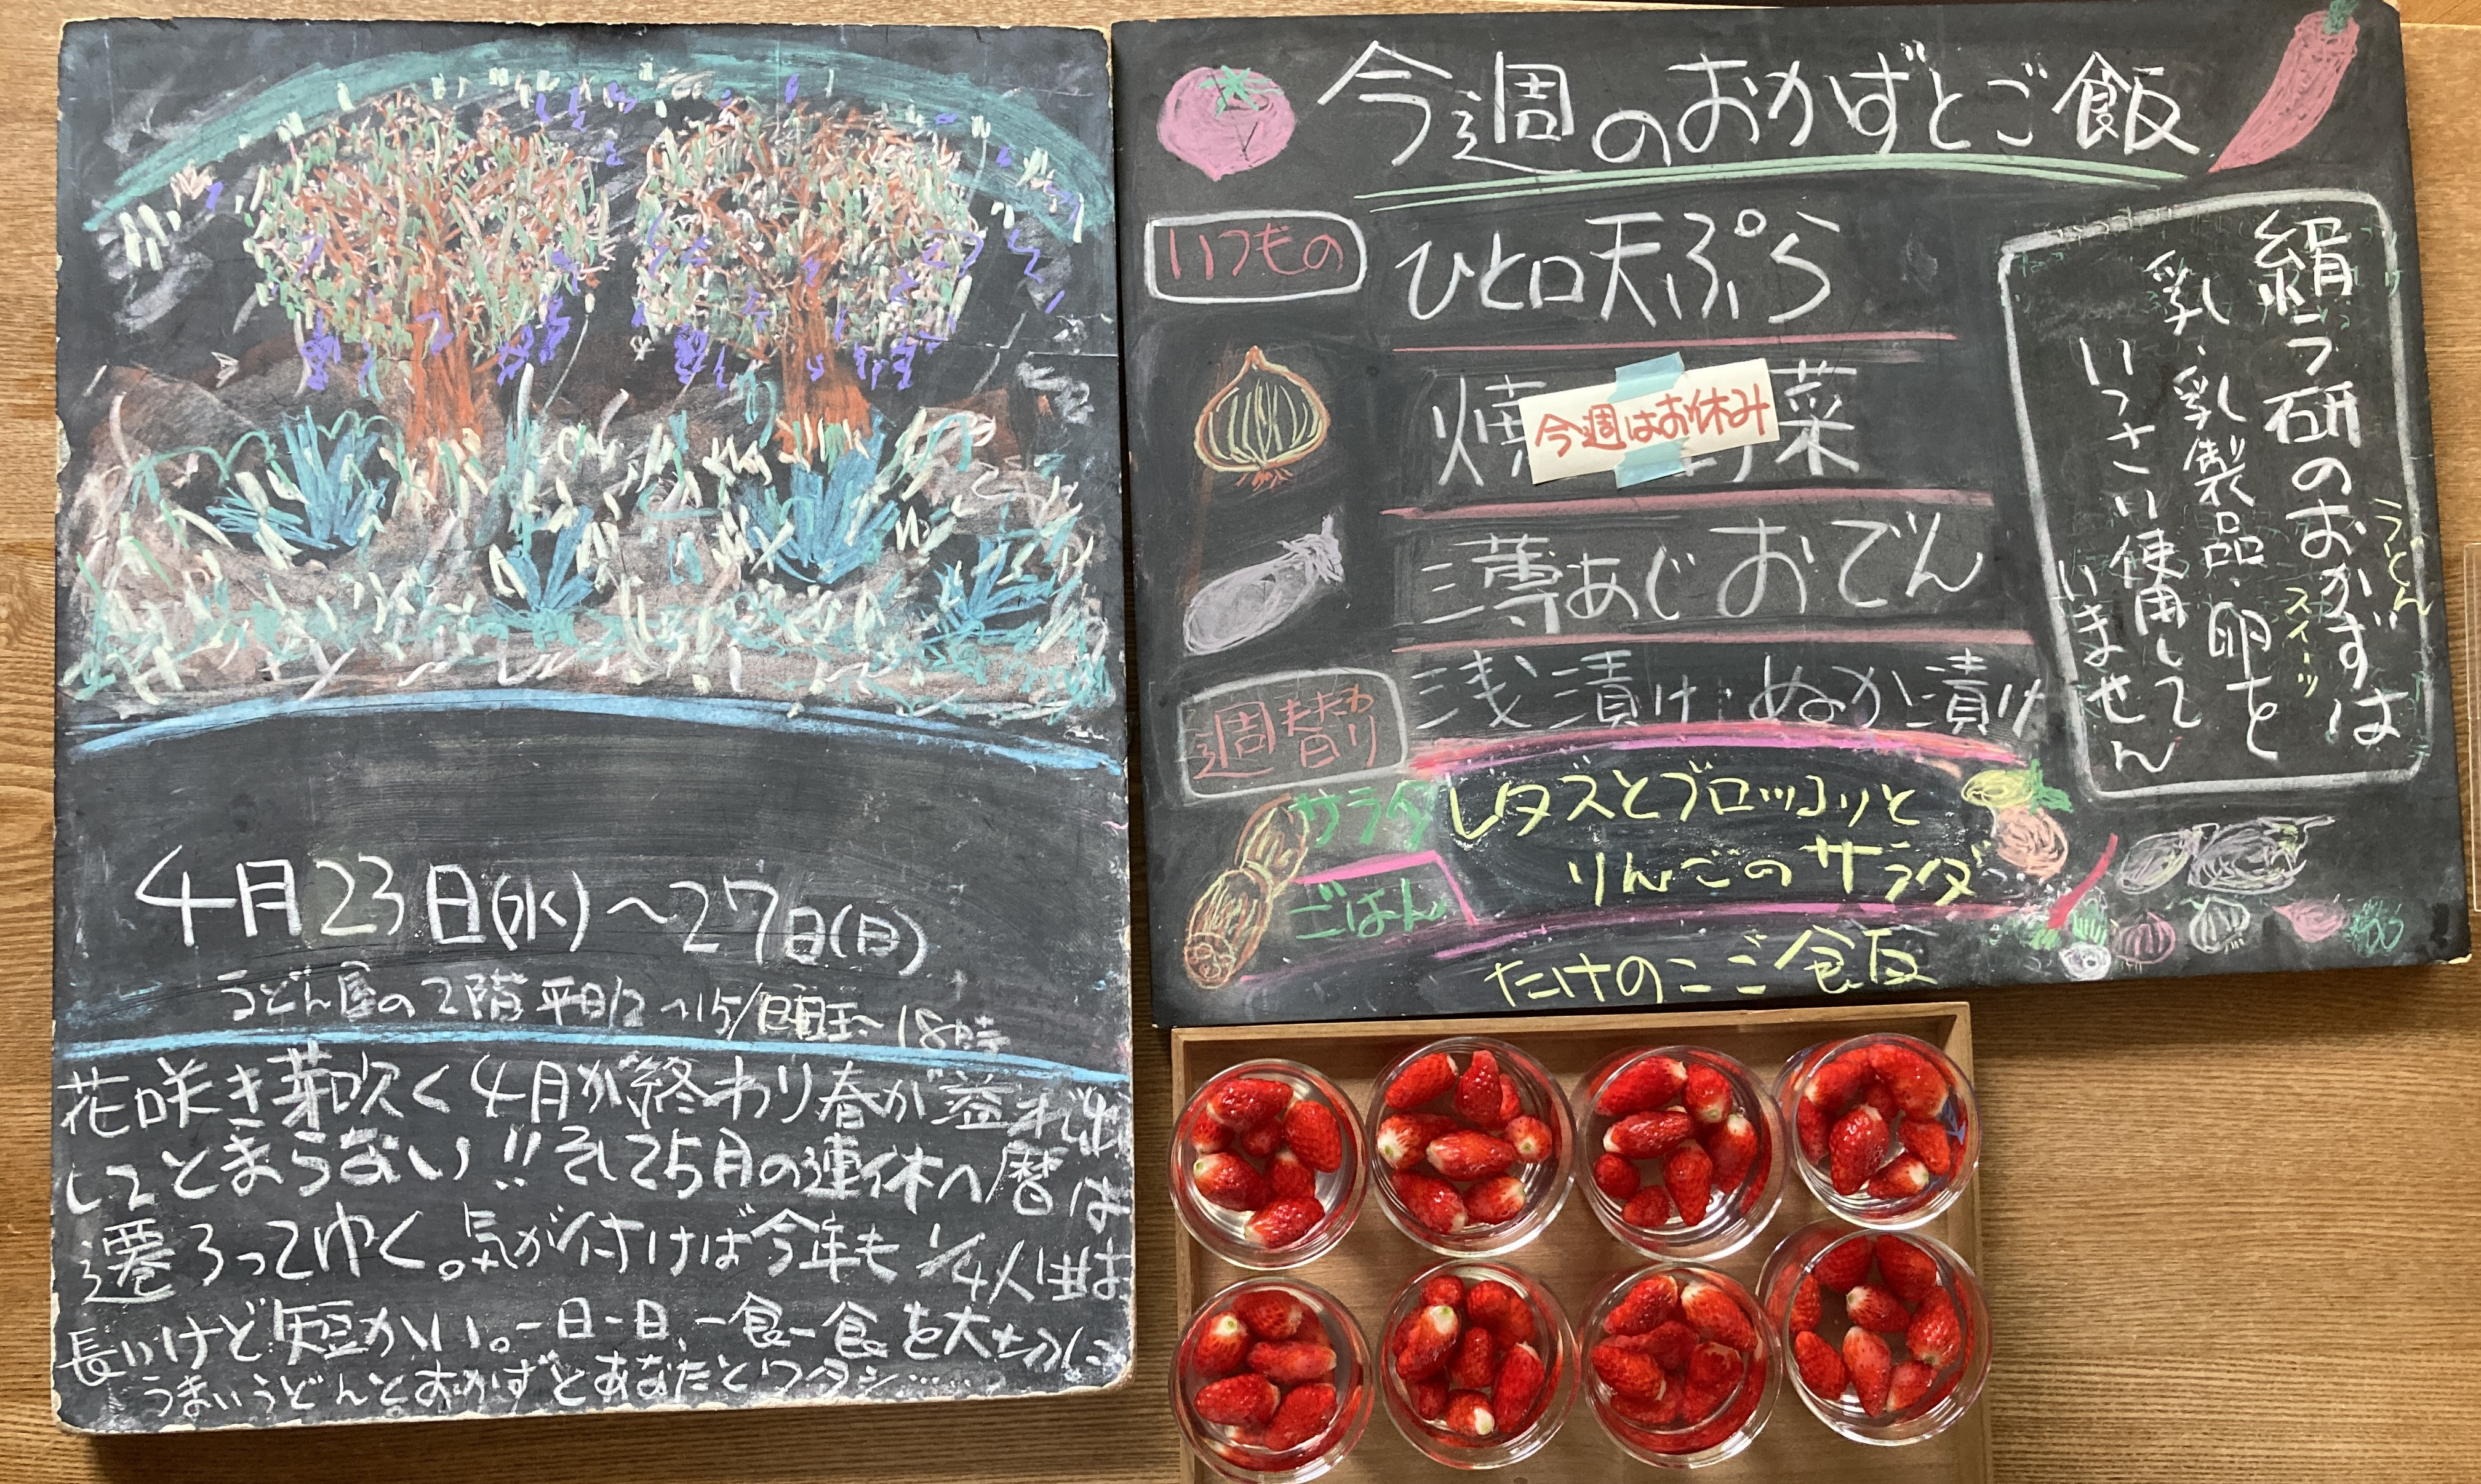 4月23日(水)〜27日(日)
うどん屋の2階 平日12〜15/
18時
花咲き芽吹く4月が終わり春が溢れ出
してとまらない!!そして5月の連休へ暦は
遷ろってゆく。気が付けば今年も1/4人生は
長いけど短かい。一日一日、一食一食を大切に
うまいうどんとおかずとあなたとワタシ……
今週のおかずとご飯
いつもの
ひと口天ぷら
焼 菜
今週はお休み
薄あじおでん
浅漬け・ぬか漬け
週替わり
サラダ
レタスとブロッコリと
りんごのサラダ
ごはん
たけのこご飯
絹う研のおかずは
うどん
スイーツ
乳・乳製品・卵を
いっさい使用して
いません